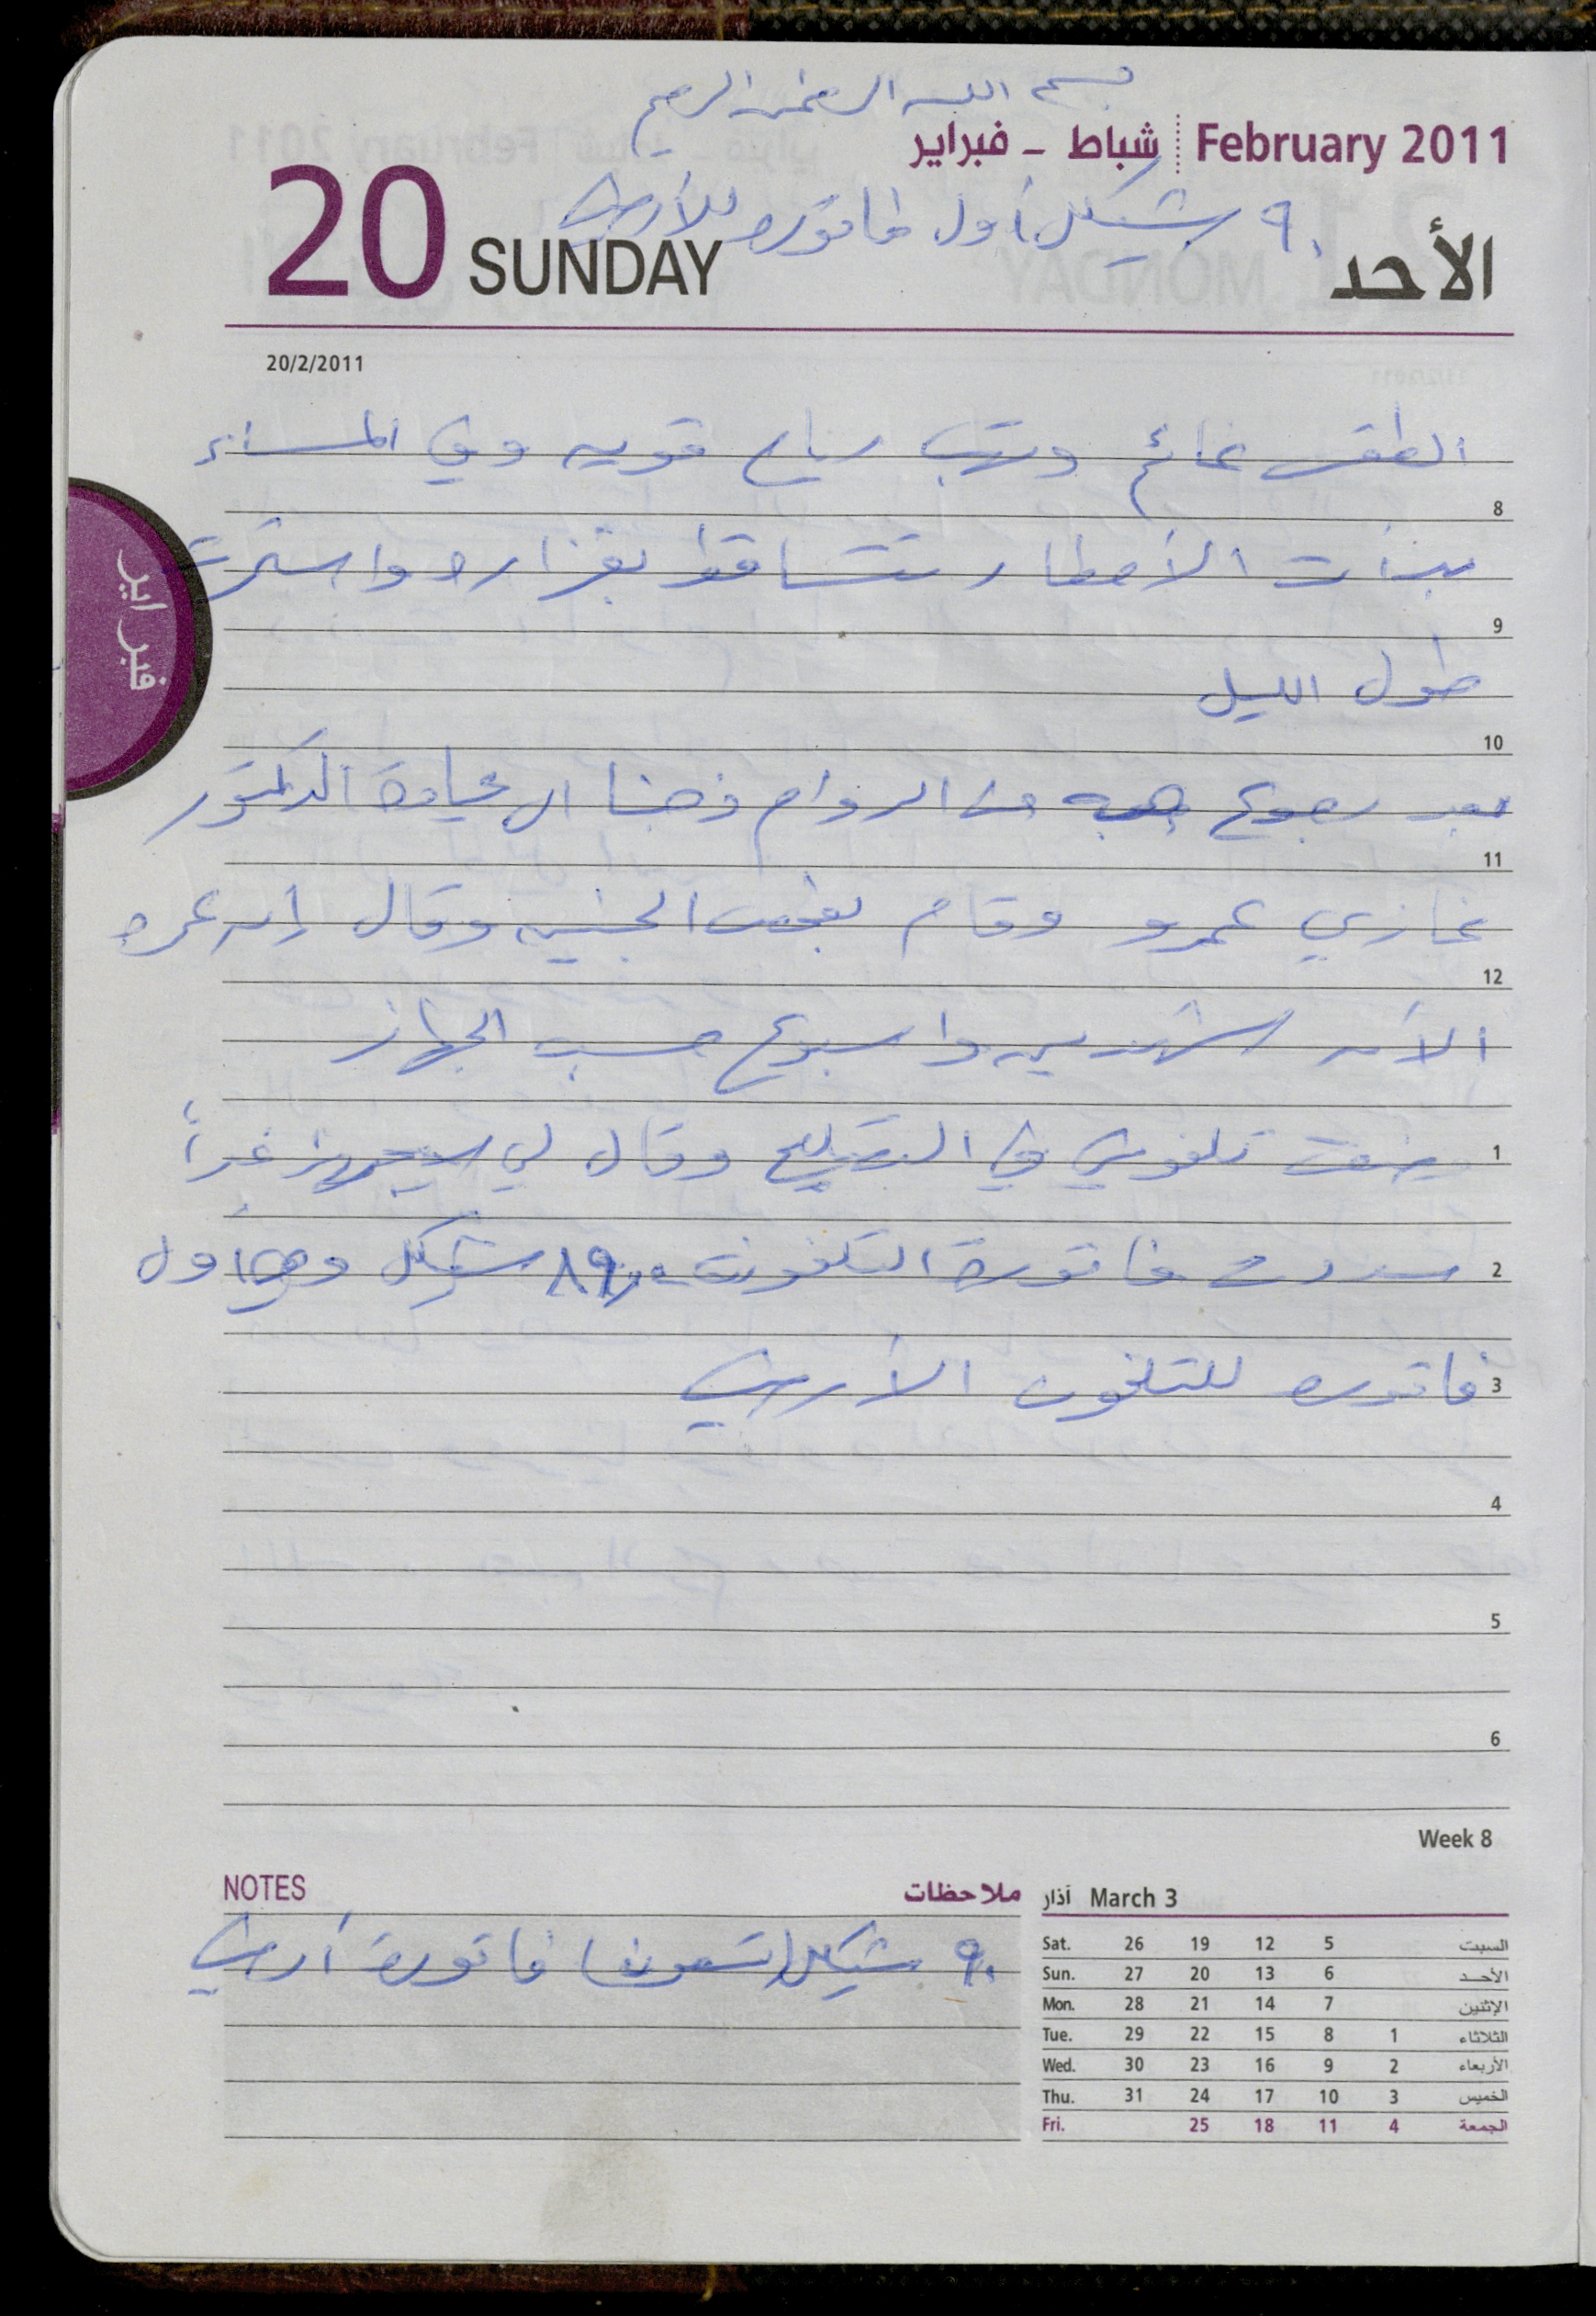 بسم الله الرحمن الرحيم
February 2011 شباط - فبراير
20 SUNDAY الأحد
٩٠ شيكل أول فاتوره للأرضي
20/2/2011
الطقس غائم وتهب رياح قويه وفي المساء
8
بدأت الأمطار تتساقط بغزاره واستمرت
9
طول الليل
10
بعد رجوع هبه من الدوام ذهبنا الى عيادة الدكتور
11
غازي عمرو وقام بفحص الجنين وقال إن عمره
12
الآن شهرين واسبوع حسب الجهاز
1 وضعت تلفوني في التصليح وقال لي سيجهز غداً
2 سددت فاتورة التلفون ٨٩٫٥٠ شيكل وهي اول
3 فاتوره للتلفون الأرضي
4
5
6
فبراير
Week 8
NOTES ملاحظات
٩٠ شيكل (تسعون) فاتورة أرضي
March 3 آذار
Sat. 26 19 12 5 السبت
Sun. 27 20 13 6 الأحد
Mon. 28 21 14 7 الإثنين
Tue. 29 22 15 8 1 الثلاثاء
Wed. 30 23 16 9 2 الأربعاء
Thu. 31 24 17 10 3 الخميس
Fri. 25 18 11 4 الجمعة